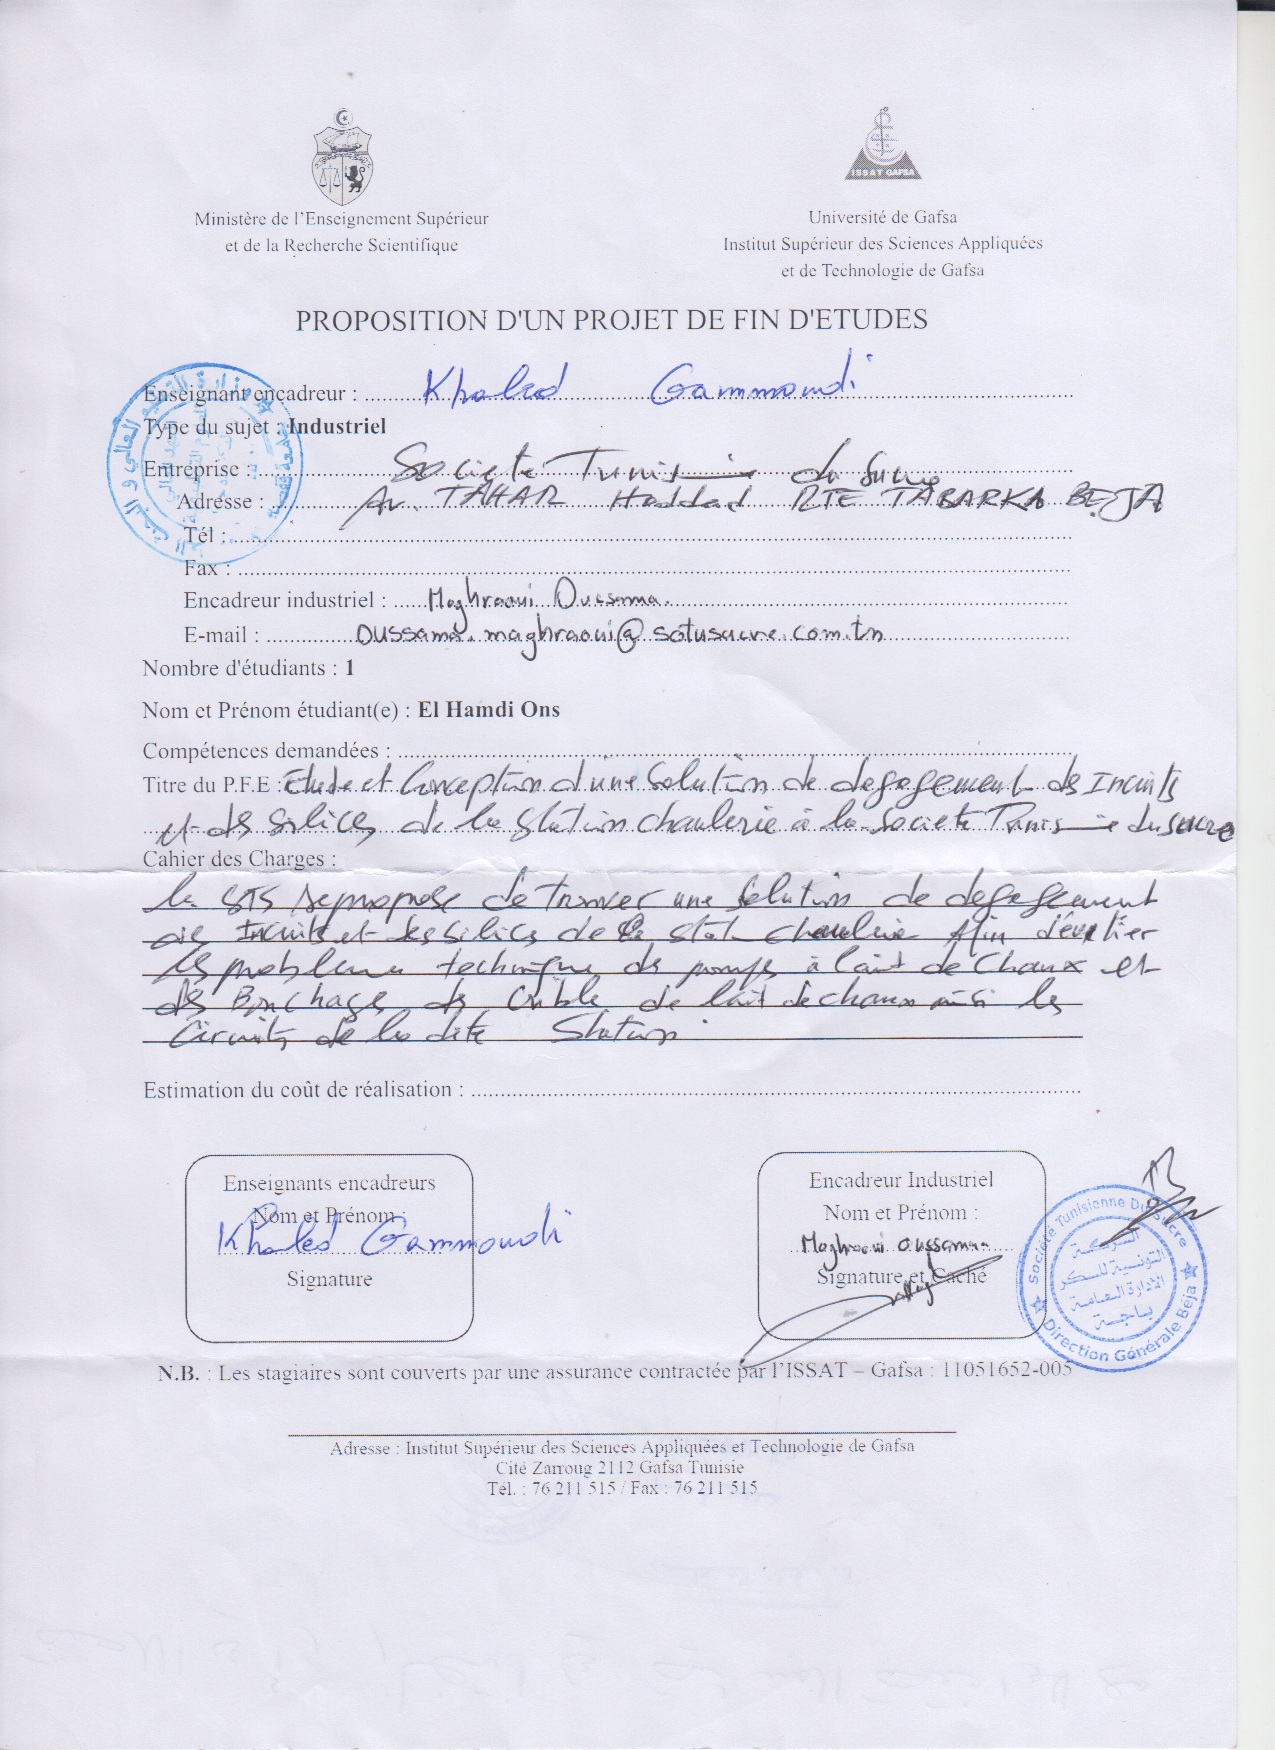 ISSAT GAFSA
Ministère de l'Enseignement Supérieur
et de la Recherche Scientifique
Université de Gafsa
Institut Supérieur des Sciences Appliquées
et de Technologie de Gafsa
PROPOSITION D'UN PROJET DE FIN D'ETUDES
Enseignant encadreur : Khaled Gammoudi
Type du sujet : Industriel
Entreprise : Societe Tunisienne du Sucre
Adresse : Av. TAHAR Haddad RTE TABARKA BEJA
Tél :
Fax :
Encadreur industriel : Maghraoui Oussama.
E-mail : oussama.maghraoui@sotusucre.com.tn
Nombre d'étudiants : 1
Nom et Prénom étudiant(e) : El Hamdi Ons
Compétences demandées :
Titre du P.F.E : Etude et Conception d'une Solution de degagement des Incuits
et des Silices de la Station chaulerie à la Societe Tunisienne du sucre
Cahier des Charges :
la STS se propose de Trouver une Solution de degagement
des Incuits et des silices de la stat chaulerie Afin d'éviter
les problemes technique des pompes à lait de Chaux et
des Bouchages des Crible de lait de chaux ainsi les
Circuits de la dite Station.
Estimation du coût de réalisation :
Enseignants encadreurs
Nom et Prénom :
Khaled Gammoudi
Signature
Encadreur Industriel
Nom et Prénom :
Maghraoui Oussama
Signature et Caché
Société Tunisienne Du Sucre
الشركة
التونسية للسكر
الادارة العامة
بباجة
Direction Générale Béja
N.B. : Les stagiaires sont couverts par une assurance contractée par l'ISSAT – Gafsa : 11051652-005
Adresse : Institut Supérieur des Sciences Appliquées et Technologie de Gafsa
Cité Zarroug 2112 Gafsa Tunisie
Tél. : 76 211 515 / Fax : 76 211 515